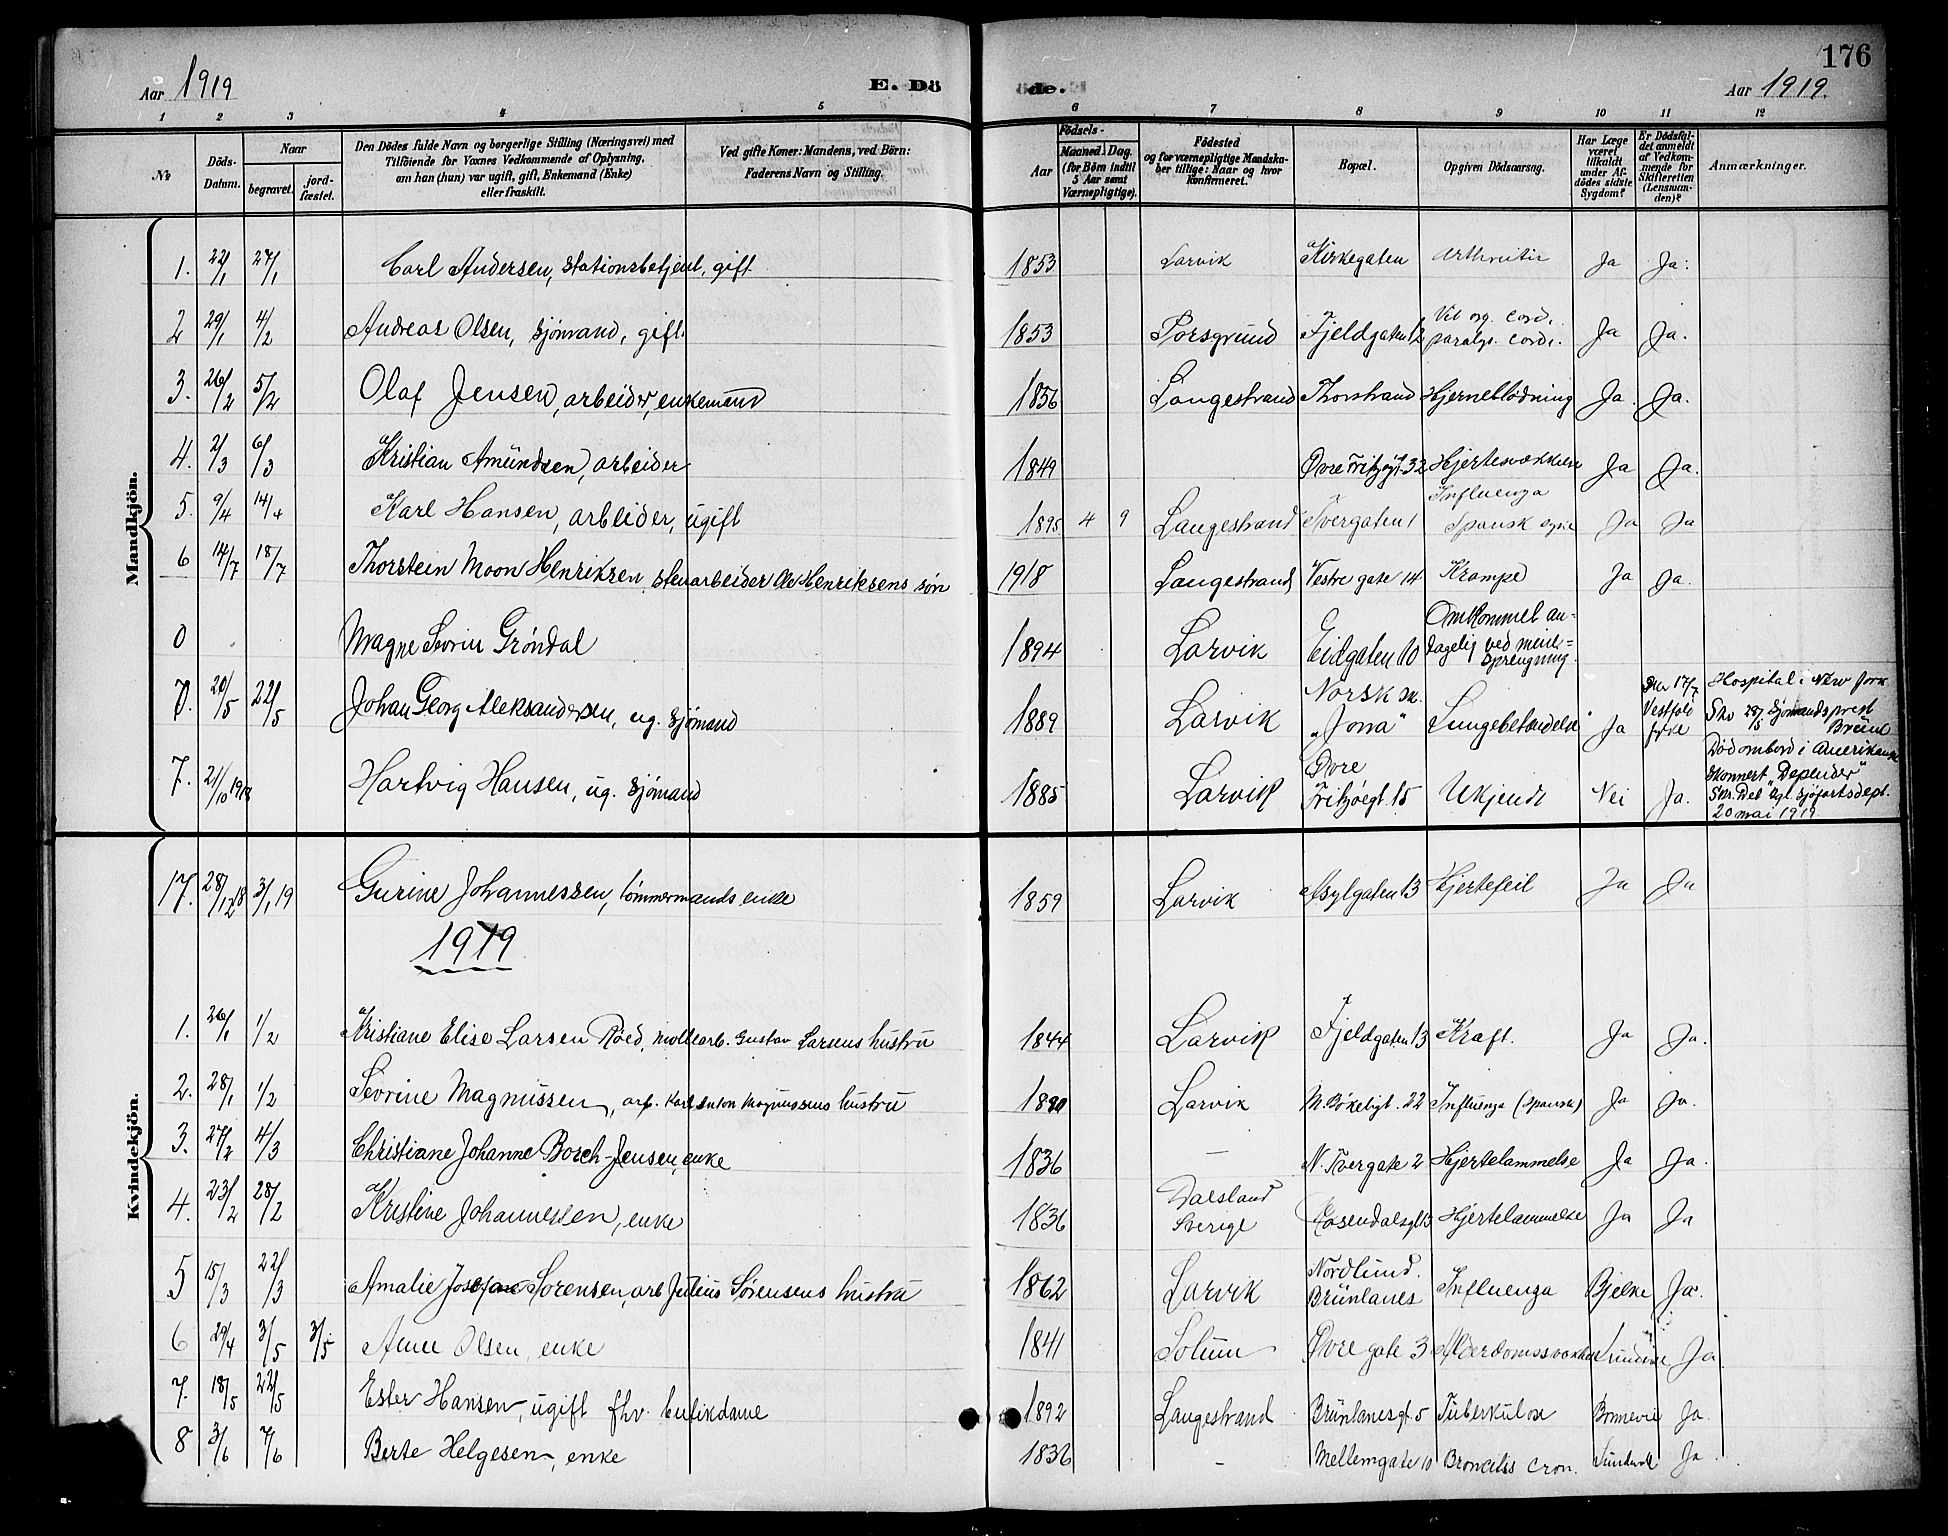 176
Aar 1919 E. Dö de. Aar 1919.
1 2 3 4 5 6 7 8 9 10 11 12
No
Döds-Datum.
Naar
begravet.
jord-fæstet.
Den Dödes fulde Navn og borgerlige Stilling (Næringsvei) med
Tilföiende for Voxnes Vedkommende af Oplysning,
om han (hun) var ugift, gift, Enkemand (Enke)
eller fraskilt.
Ved gifte Koner: Mandens, ved Börn:
Faderens Navn og Stilling.
Födsels-
Aar
Maaned. Dag.
(for Börn indtil
5 Aar samt
Værnepligtige).
Födested
og for værnepligtige Mandska-
ber tillige: Naar og hvor
Konfirmeret.
Bopæl.
Opgiven Dödsaarsag.
Har Læge
været
tilkaldt
under Af-
dödes sidste
Sygdom?
Er Dödsfal-
det anmeldt
af Vedkom-
mende for
Skifteretten
(Lensman-
den)?
Anmærkninger.
Mandkjön.
1. 22/1 27/1 Carl Andersen, Stationsbetjent, gift 1853 Larvik Kirkegaten Arthritis Ja Ja.
2 29/1 4/2 Andreas Olsen, sjömand, gift 1853 Porsgrund Fjeldgaten 12 Vit org. cord. paralys. cordi. Ja Ja.
3. 26/2 5/2 Olaf Jensen, arbeider, enkemand 1856 Langestrand Thorstrand Hjerneblödning Ja. Ja.
4. 2/3 6/3 Kristian Amundsen, arbeider 1849 Övre Fritzögt. 32 Hjertesvækkelse Ja Ja.
5. 9/4 14/4 Karl Hansen, arbeider, ugift 1895 4 9 Langestrand Tvergaten 1 Influenza Spansk syke Ja Ja
6 14/7 18/7 Thorstein Moon Henriksen, stenarbeider Ole Henriksens sön 1918 Langestrand Vestre gate 14 Krampe Ja Ja.
0 Magne Severin Gröndal 1894 Larvik Eidgaten 10 Omkommet an-
dagelig ved mine-
sprengning.
20/5 22/5 Johan Georg Aleksandersen, ug. sjömand 1889 Larvik Norsk sk. "Jona" Lungebetændelse Ja 17/7 Vestfold fylke Hospital i New York
28/5 Sjömandsprest
7. 21/10 1918 Hartvig Hansen, ug. sjömand 1885 Larvik Övre Fritzöegt. 15 Ukjendt Nei Ja. Död ombord i Amerikansk
Skonnert "Depender"
Skr. Det kgl. sjöfartsdept.
20 mai 1919
Kvindekjön.
17. 28/12 18 3/1 19 Gurine Johannessen, tömmermands enke 1859 Larvik Asylgaten 13 Hjertefeil Ja Ja
1919
1. 26/1 1/2 Kristiane Elise Larsen Röed, möllearb. Gustav Larsens hustru 1844 Larvik Fjeldgaten 13 Kraft. Ja Ja.
2. 28/1 1/2 Severine Magnussen, arb. Karl Anton Magnussens hustru Larvik M. Bökeligt. 22 Influenza (Spansk) Ja Ja.
3. 27/2 4/3 Christiane Johanne Borch-Jensen, enke 1836 — N. Tvergate 2 Hjertelammelse Ja Ja.
4. 23/2 28/2 Kristine Johannessen, enke 1836 Dalsland Sverige Rosendalsgt 13 Hjertelammelse Ja Ja
5 15/3 22/3 Amalie Josefine Sörensen, arb Julius Sörensens hustru 1862 Larvik Nordlund. Brunlanes Influenza Bjelke Ja.
6 29/4 3/5 3/5 Anne Olsen, enke 1841 Solum Övre gate 3 Alderdomssvækkelse Ja.
7. 18/5 22/5 Ester Hansen, ugift fhv. butikdame 1892 Langestrand Brunlanesgt. 5 Tuberkulose Bonnevie Ja.
8 3/6 7/6 Berte Helgesen, enke 1836 — Mellemgate 10 Broncitis cron. Ja.